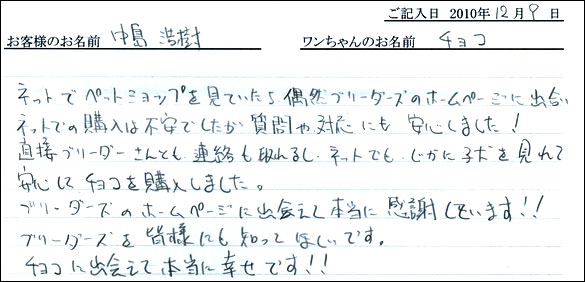 ご記入日 2010年12月9日
お客様のお名前 中島 浩樹 ワンちゃんのお名前 チョコ
ネットでペットショップを見ていたら偶然ブリーダーズのホームページに出会い
ネットでの購入は不安でしたが質問や対応にも安心しました!
直接ブリーダーさんとも連絡も取れるし、ネットでも、じかに子犬を見れて
安心してチョコを購入しました。
ブリーダーズのホームページに出会えて本当に感謝しています!!
ブリーダーズを皆様にも知ってほしいです。
チョコに出会えて本当に幸せです!!